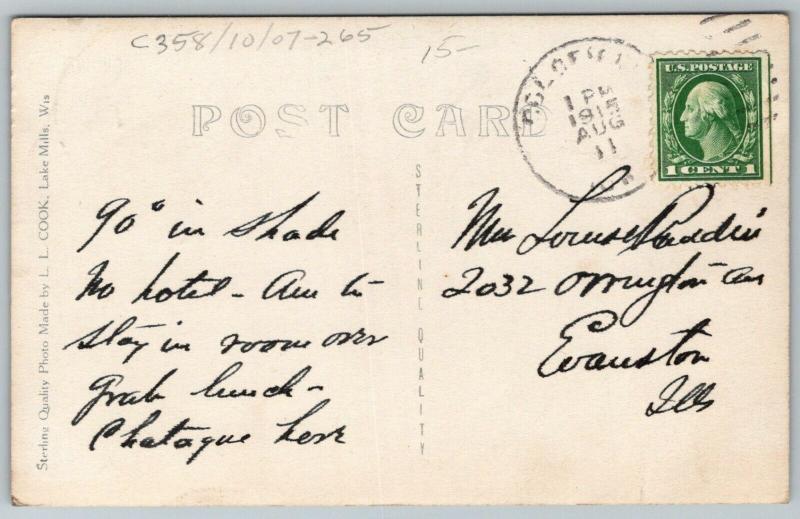 C358/10/07-265
15-
POST CARD
1 PM
1915
AUG
11
U.S. POSTAGE
1 CENT 1
Sterling Quality Photo Made by L. L. COOK, Lake Mills, Wis
STERLING QUALITY
90° in shade
No hotel - Am to
stay in room over
Grab lunch -
Chataque here
Louise
2032 Orrington Ave
Evanston
Ills